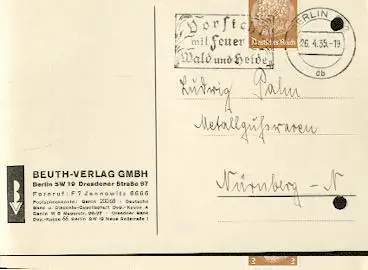 BERLIN
26.4.35.-19
cb
Vorsicht
mit Feuer in
Wald und Heide
Deutsches Reich
Ludwig Palm
Metallgußwaren
Nürnberg - N
BEUTH-VERLAG GMBH
Berlin SW 19 Dresdener Straße 97
Fernruf: F 7 Jannowitz 6666
Postscheckkonto: Berlin
Deutsche
Bank u. Disconto-Gesellschaft Dep.-Kasse A
Berlin W 8 Mauerstr. 26-27 · Dresdner Bank
Dep.-Kasse 66 Berlin SW 19 Neue Roßstraße 1
3 3